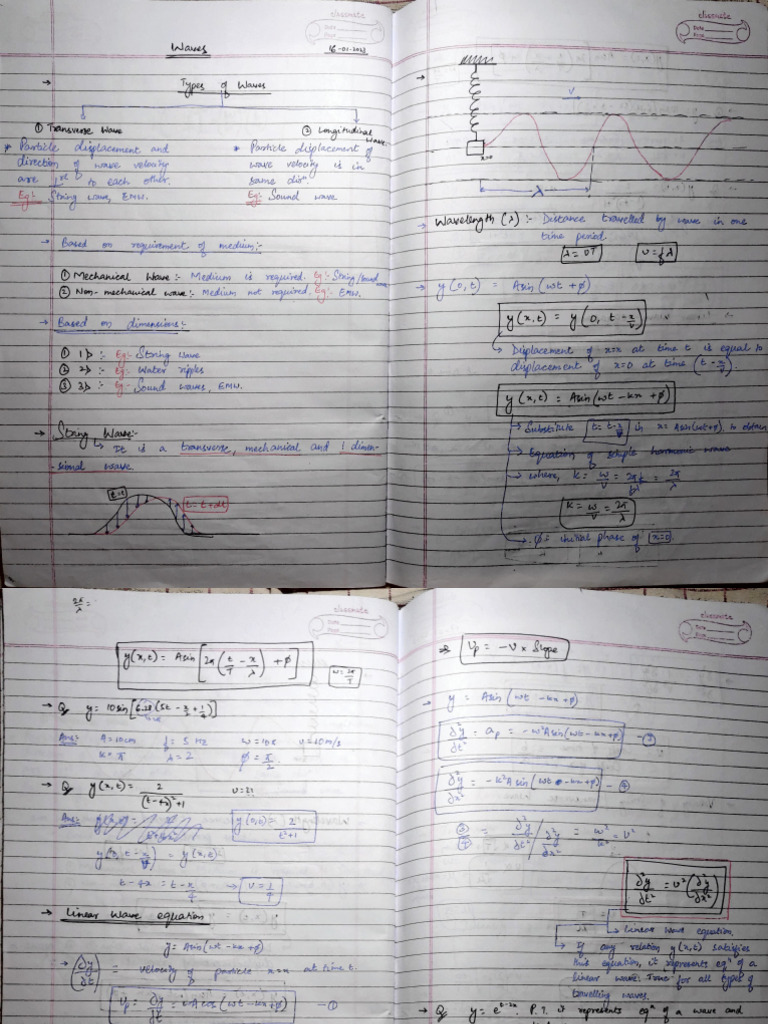 classmate
Date
Page
Waves
16-01-2023
→ Types of Waves
① Transverse Wave
* Particle displacement and
direction of wave velocity
are ⊥re to each other.
Eg:- String wave, EMW.
② Longitudinal wave
* Particle displacement of
wave velocity is in
same dirn.
Eg:- Sound wave
→ Based on requirement of medium:-
① Mechanical Wave:- Medium is required. Eg:- String/Sound
② Non-mechanical wave:- Medium not required. Eg:- EMW.
→ Based on dimensions:-
① 1D :- Eg:- String wave
② 2D :- Eg:- Water ripples
③ 3D :- Eg:- Sound waves, EMW.
→ String Wave:-
↳ It is a transverse, mechanical and 1 dimen-
-sional wave
t=t
t=t+dt
classmate
Date
Page
V
x=0
λ
→ Wavelength (λ) :- Distance travelled by wave in one
time period.
λ = VT
v = fλ
→ y(0,t) = Asin(wt+φ)
y(x,t) = y(0, t-x/v)
→ Displacement of x=x at time t is equal to
displacement of x=0 at time (t-x/v).
y(x,t) = Asin(wt-kx+φ)
→ Substitute t=t-x/v in x=Asin(wt+φ) to obtain
→ Equation of simple harmonic wave
→ where, K = w/v = 2πf/fλ = 2π/λ
K = w/v = 2π/λ
→ φ = initial phase of x=0.
2π/λ =
classmate
Date
Page
y(x,t) = Asin[2π(t/T - x/λ) + φ]
w = 2π/T
→ Q y = 10sin[6.28(5t - x/2 + 1/4)]
Ans:- A=10cm f=5 Hz w=10π v=10m/s
K=π λ=2 φ=π/2
→ Q y(x,t) = 2/((t-4x)²+1) v=?!
Ans:- y(0,t) = 2/(t²+1)
y(0, t-x/v) = y(x,t)
t-4x = t-x/v → v=1/4
→ Linear wave equation
y = Asin(wt-kx+φ)
→ (∂y/∂t) = velocity of particle x=x at time t.
Vp = ∂y/∂t = wAcos(wt-kx+φ) —①
classmate
Date
Page
Vp = -v × Slope
→ y = Asin(wt-kx+φ)
∂²y/∂t² = ap = -w²Asin(wt-kx+φ) —③
∂²y/∂x² = -k²Asin(wt-kx+φ) —④
③/④ = ∂²y/∂t² / ∂²y/∂x² = w²/k² = v²
∂²y/∂t² = v²(∂²y/∂x²)
→ Linear wave equation.
→ If any relation y(x,t) satisfies
this equation, it represents eqn of a
linear wave. True for all types of
travelling waves.
→ Q y = e^(t-2x). P.T. it represents eqn of a wave and